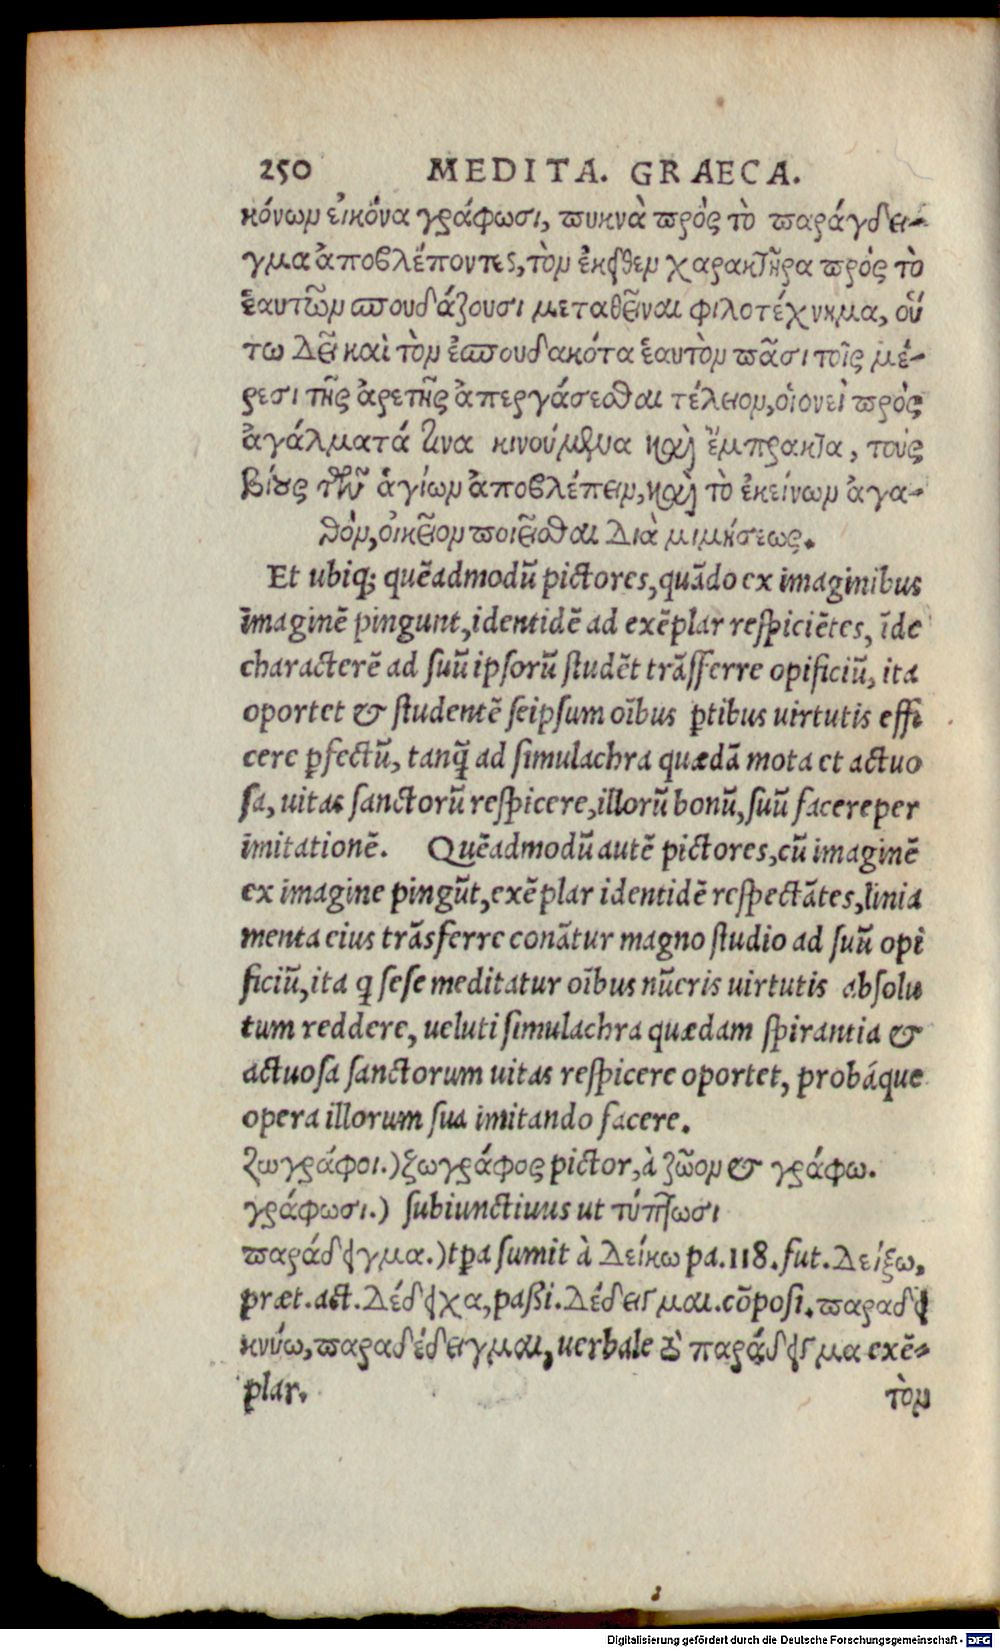 250 MEDITA. GRAECA.
κόνων εἰκόνα γράφωσι, πυκνὰ πρὸς τὸ παράγδει-
γμα ἀποβλέποντες, τὸν ἐκεῖθεν χαρακτῆρα πρὸς τὸ
ἑαυτῶν σπουδάζουσι μεταθεῖναι φιλοτέχνημα, οὕ
τω δεῖ καὶ τὸν ἐσπουδακότα ἑαυτὸν πᾶσι τοῖς μέ-
ρεσι τῆς ἀρετῆς ἀπεργάσεσθαι τέλειον, οἱονεὶ πρὸς
ἀγάλματά τινα κινούμενα καὶ ἔμπρακτα, τοὺς
βίους τῶν ἁγίων ἀποβλέπειν, καὶ τὸ ἐκείνων ἀγα-
θὸν, οἰκεῖον ποιεῖσθαι διὰ μιμήσεως.
Et ubiq; quēadmodū pictores, quādo ex imaginibus
imaginē pingunt, identidē ad exēplar respiciētes, īde
characterē ad suū ipsorū studēt trāsferre opificiū, ita
oportet & studentē seipsum oībus ꝑtibus uirtutis effi
cere ꝑfectū, tanq̄ ad simulachra quædā mota et actuo
sa, uitas sanctorū respicere, illorū bonū, suū facere per
imitationē. Quēadmodū autē pictores, cū imaginē
ex imagine pingūt, exēplar identidē respectātes, linia
menta eius trāsferre conātur magno studio ad suū opi
ficiū, ita q̄ sese meditatur oībus nūeris uirtutis absolu
tum reddere, ueluti simulachra quædam spirantia &
actuosa sanctorum uitas respicere oportet, probáque
opera illorum sua imitando facere.
ζωγράφοι.) ζωγράφος pictor, à ζῶον & γράφω.
γράφωσι.) subiunctiuus ut τύπτωσι
παράδειγμα.) tꝑa sumit à δείκω pa. 118. fut. δείξω,
præt. act. δέδειχα, passi. δέδειγμαι. cōposi. παραδει
κνύω, παραδέδειγμαι, uerbale παράδειγμα exē-
plar. τὸν
Digitalisierung gefördert durch die Deutsche Forschungsgemeinschaft - DFG